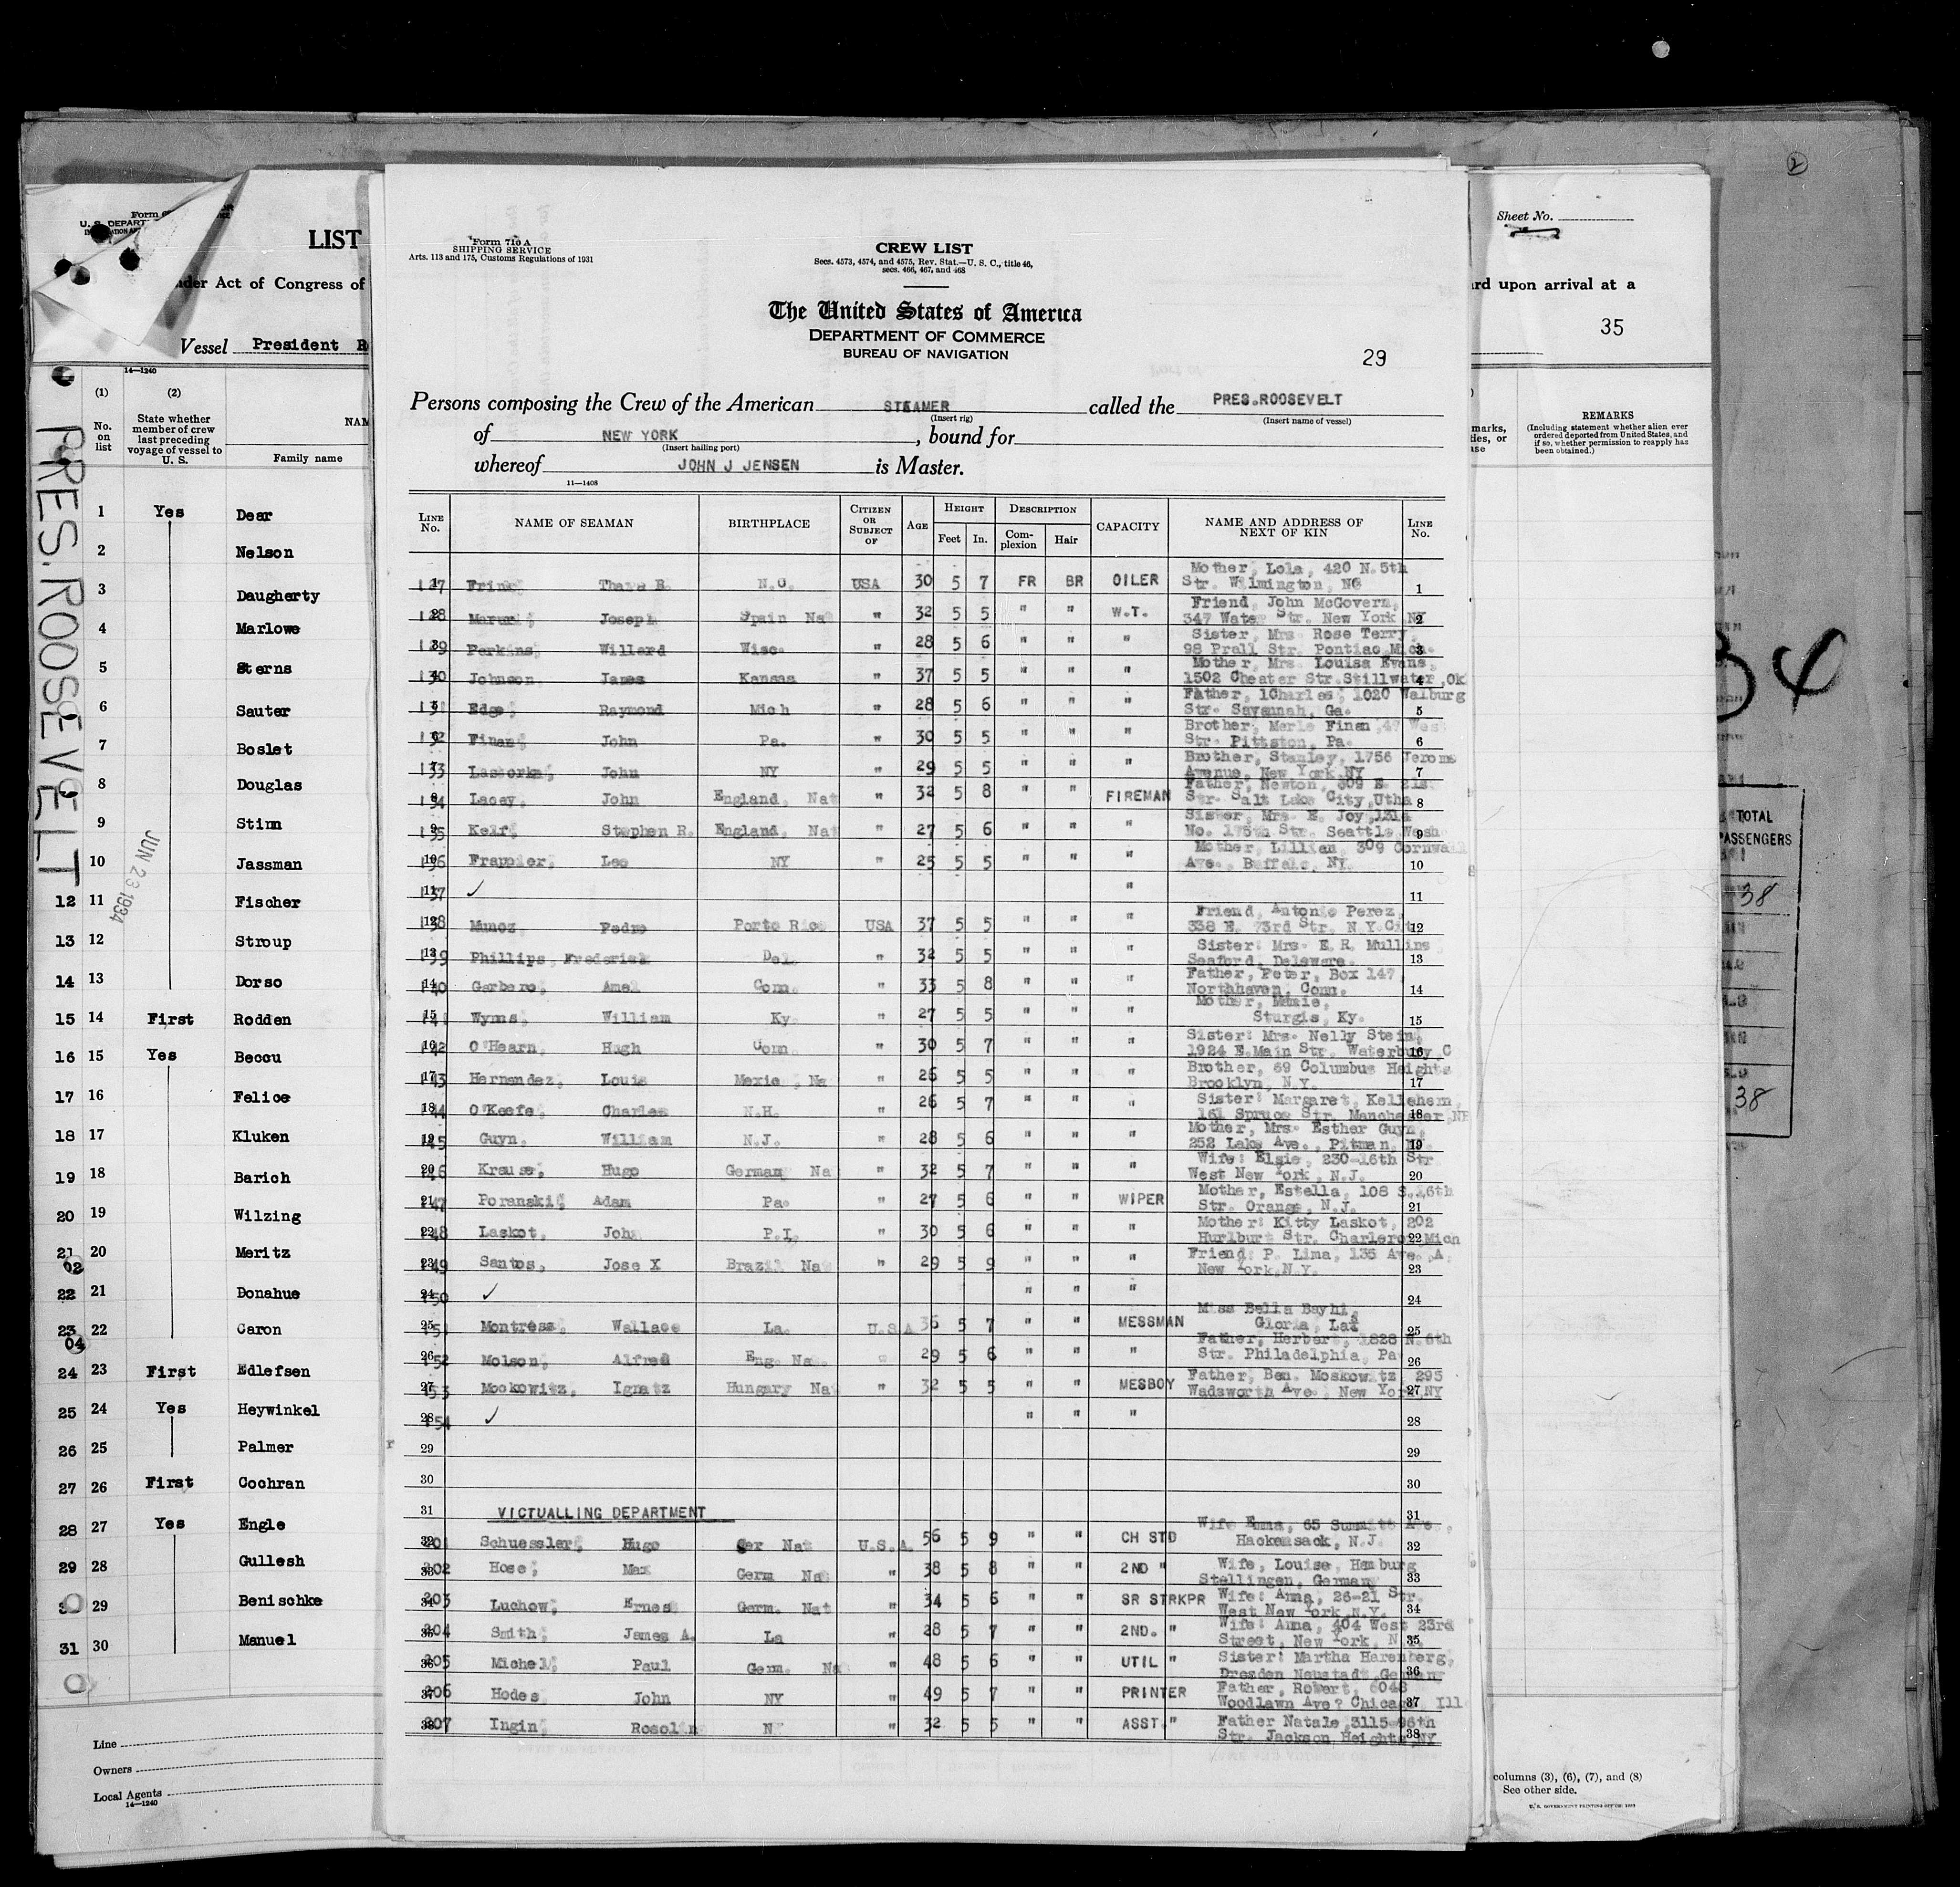 Sheet No.
Form
U. S. DEPART
LIST
nder Act of Congress of
rd upon arrival at a
35
Vessel President R
14—1240
(1)
(2)
No. on list
State whether member of crew last preceding voyage of vessel to U. S.
NAM
Family name
PRES. ROOSEVELT
JUN 23 1934
1 Yes Dear
2 Nelson
3 Daugherty
4 Marlowe
5 Sterns
6 Sauter
7 Boslet
8 Douglas
9 Stinn
10 Jassman
12 11 Fischer
13 12 Stroup
14 13 Dorso
15 14 First Rodden
16 15 Yes Beccu
17 16 Felice
18 17 Kluken
19 18 Barich
20 19 Wilzing
21 20 Meritz
02
22 21 Donahue
23 22 Caron
04
24 23 First Edlefsen
25 24 Yes Heywinkel
26 25 Palmer
27 26 First Cochran
28 27 Yes Engle
29 28 Gullesh
29 Benischke
31 30 Manuel
Line
Owners
Local Agents
14—1240
Form 710 A
SHIPPING SERVICE
Arts. 113 and 175, Customs Regulations of 1931
CREW LIST
Secs. 4573, 4574, and 4575, Rev. Stat.—U. S. C., title 46,
secs. 466, 467, and 468
The United States of America
DEPARTMENT OF COMMERCE
BUREAU OF NAVIGATION
29
Persons composing the Crew of the American STEAMER called the PRES.ROOSEVELT
(Insert rig) (Insert name of vessel)
of NEW YORK, bound for
(Insert hailing port)
whereof JOHN J JENSEN is Master.
11—1408
LINE No. NAME OF SEAMAN BIRTHPLACE CITIZEN OR SUBJECT OF AGE HEIGHT Feet In. DESCRIPTION Complexion Hair CAPACITY NAME AND ADDRESS OF NEXT OF KIN LINE No.
Mother, Lola, 420 N.5th
1 127 Frink, N.C. USA 30 5 7 FR BR OILER Str. Wilmington, NC 1
Friend, John McGovern,
2 128 Joseph Spain Na " 32 5 5 " " W.T. 347 Water Str. New York NY 2
Sister, Mrs Rose Terry,
3 129 Perkins, Willard Wisc. " 28 5 6 " " " 98 Prall Str. Pontiac Mich. 3
Mother, Mrs. Louisa Evans,
4 130 Johnson James Kansas " 37 5 5 " " " 1502 Cheater Str.Stillwater,Ok 4
Father, lCharles, 1020 Walburg
5 131 Edge, Raymond Mich " 28 5 6 " " " Str. Savannah, Ga. 5
Brother, Merle Finan ,47 West
6 132 Finan, John Pa. " 30 5 5 " " " Str. Pittston, Pa. 6
Brother, Stanley, 1756 Jerome
7 133 John NY " 29 5 5 " " " Avenue, New York,NY 7
Father, Newton, 609 E. 21s
8 134 Lacey, John England, Nat " 32 5 8 " " FIREMAN Str. Salt Lake City,Utha 8
Sister, Mrs. E. Joy,1314
9 135 Kelf, Stephen R. England, Nat " 27 5 6 " " " No. 175th Str. Seattle Wash 9
Mother, Lillian, 309 Cornwall
10 136 Frappier, Leo NY " 25 5 5 " " " Ave., Buffalo, NY. 10
11 137 ✓ " 11
Friend, Antonio Perez,
12 138 Munoz Pedro Porto Rico USA 37 5 5 " " " 338 E. 73rd Str. N.Y.City 12
Sister: Mrs. E.R. Mullins
13 139 Phillips, Frederick Del. " 32 5 5 " " " Seaford, Deleware. 13
Father, Peter, Box 147,
14 140 Garbero, Amel Conn. " 33 5 8 " " " Northhaven, Conn. 14
Mother,
15 141 Wynns, William Ky. " 27 5 5 " " " Sturgis, Ky. 15
Sister: Mrs. Nelly Stein,
16 142 O'Hearn, Hugh Conn " 30 5 7 " " " 1924 E.Main Str. Waterbury,C 16
Brother, 69 Columbus Heights
17 143 Hernandez, Louis Mexic, Na " 26 5 5 " " " Brooklyn, N.Y. 17
Sister: Margaret, Kellehern,
18 144 O'Keefe, Charles N.H. " 26 5 7 " " " 161 Spruce Str. Manchester,NH 18
Mother, Mrs. Esther Guyn,
19 145 Guyn. William N.J. " 28 5 6 " " " 252 Lake Ave., Pitman 19
Wife: Elsie, 230-16th Str
20 146 Krause, Hugo German Na " 32 5 7 " " " West New York, N.J. 20
Mother, Estella, 108 S.16th
21 147 Poranski, Adam Pa. " 27 5 6 " " WIPER Str. Orange, N.J. 21
Mother: Kitty Laskot, 202
22 148 Laskot, John P.I. " 30 5 6 " " " Hurlburt Str. Charleroi Mich 22
Friend: P. Lima, 135 Ave. A,
23 149 Santos, Jose X Brazil Na " 29 5 9 " " " New York,N.Y. 23
24 150 ✓ " " " 24
Miss Bella Bayhi,
25 151 Montress, Wallace La. U.S.A 36 5 7 " " MESSMAN Gloria, La. 25
Father, Herbert, 1828 N.6th
26 152 Molson, Alfred Eng. Na. " 29 5 6 " " " Str. Philadelphia, Pa 26
Father, Ben. Moskowitz, 295
27 153 Moskowitz, Ignatz Hungary Na " 32 5 5 " " MESBOY Wadsworth Ave., New York,NY 27
28 154 ✓ " " " 28
29 29
30 30
31 VICTUALLING DEPARTMENT 31
Wife Emma, 65 Summitt Ave.,
32 201 Schuessler, Hugo Ger Nat U.S.A. 56 5 9 " " CH STD Hackensack, N.J. 32
Wife, Louise, Hamburg
33 202 Hose, Max Germ Na " 38 5 8 " " 2ND " Stellingen, German 33
Wife: Anna, 26-21 Str.
34 203 Luchow, Ernest Germ. Nat " 34 5 6 " " SR STRKPR West New York,N.Y. 34
Wife: Anna, 404 West 23rd
35 204 Smith, James A. La " 28 5 7 " " 2ND. " Street, New York, N 35
Sister: Martha Harenberg,
36 205 Michel, Paul Germ. Na " 48 5 6 " " UTIL " Dresden Neustadt,Germany 36
Father, Robert, 6048
37 206 Hodes John NY " 49 5 7 " " PRINTER Woodlawn Ave? Chicago, Ill 37
Father Natale,3115-96th
38 207 Ingin, Rosolin NY " 32 5 5 " " ASST. " Str. Jackson Heights,NY 38
marks,
REMARKS
(Including statement whether alien ever ordered deported from United States, and if so, whether permission to reapply has been obtained.)
2
34
TOTAL
PASSENGERS
38
38
columns (3), (6), (7), and (8)
See other side.
U. S. GOVERNMENT PRINTING OFFICE